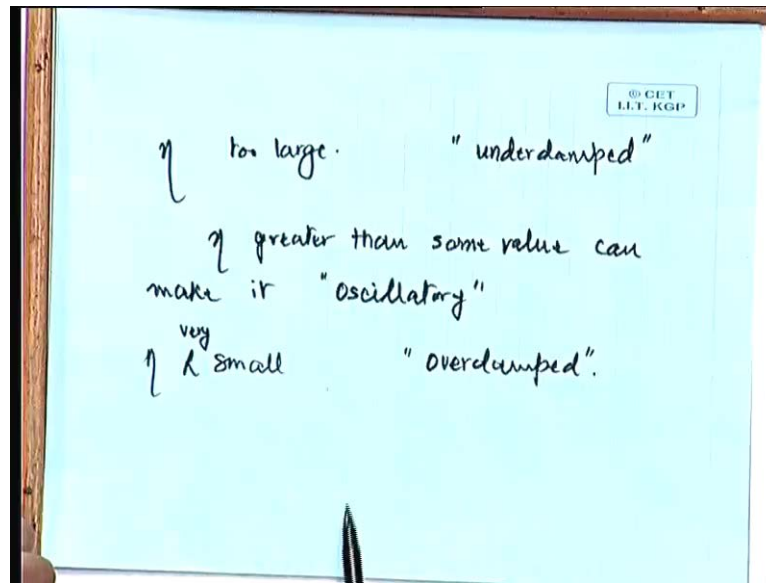 © CET
I.I.T. KGP
η too large. "underdamped"
η greater than some value can
make it "oscillatory"
very
η small "overdamped".